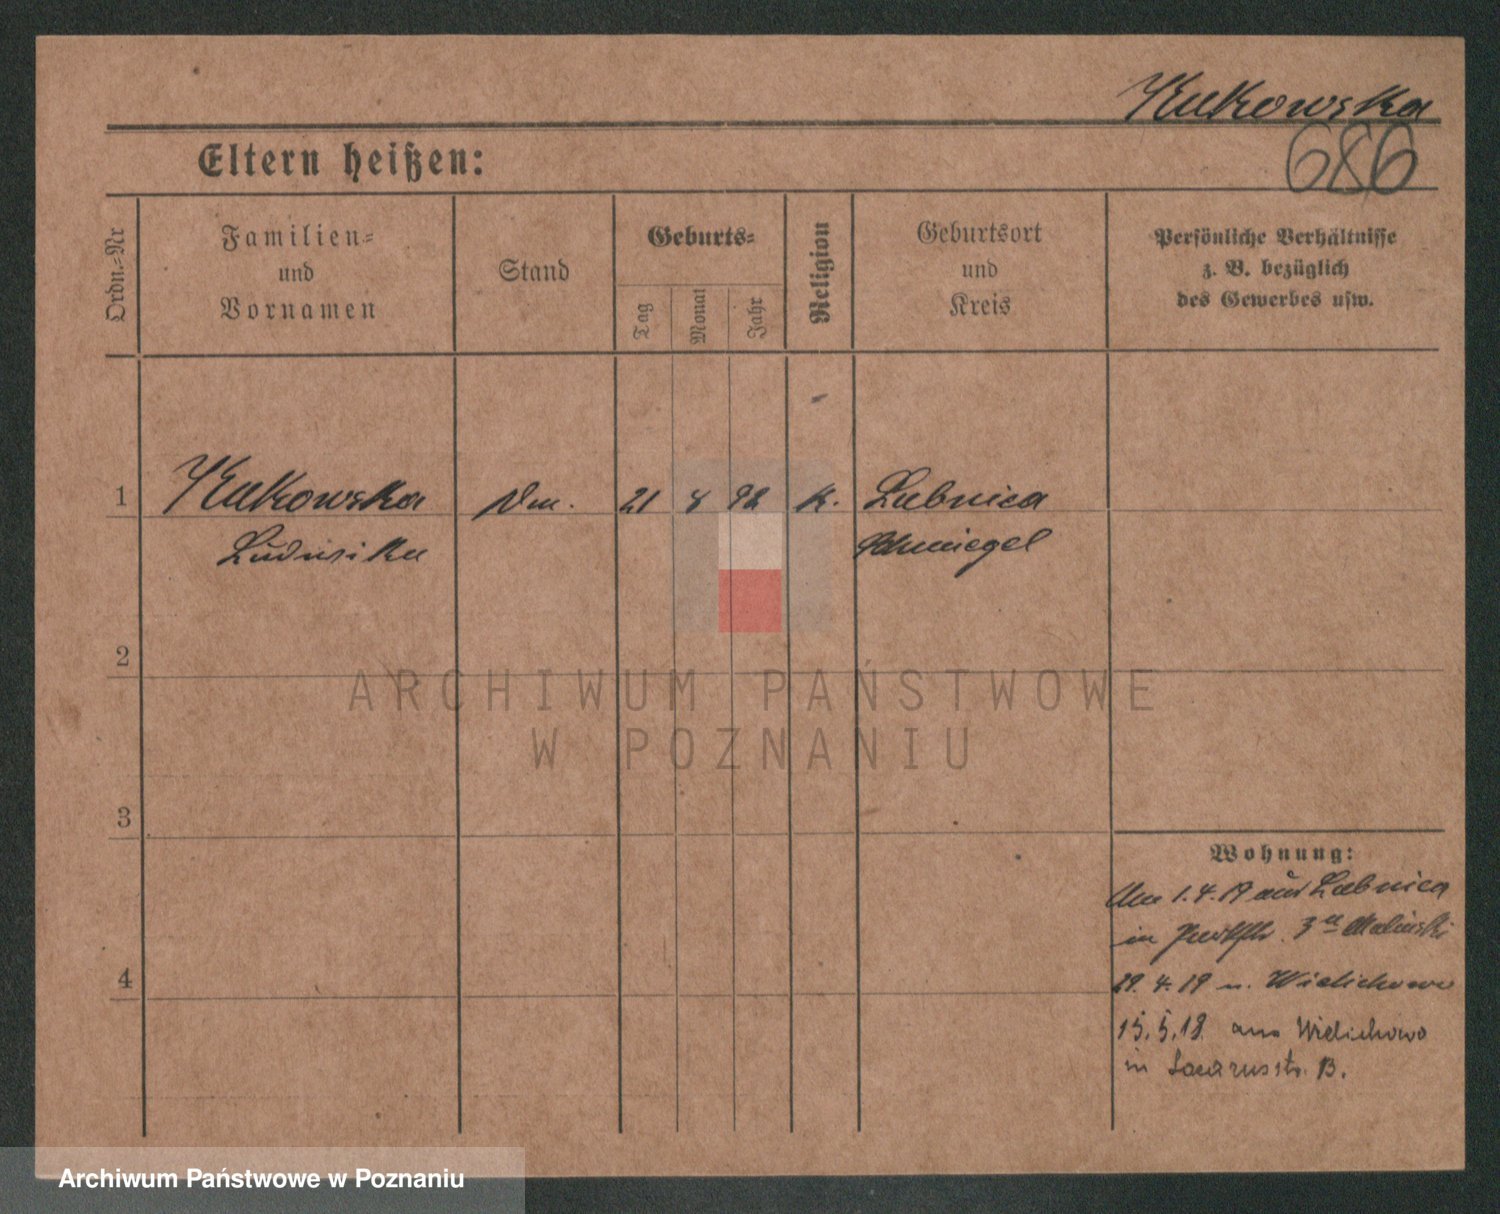 Kukowska
686
Eltern heißen:
Ordn.-Nr
Familien-
und
Vornamen
Stand
Geburts-
Tag
Monat
Jahr
Religion
Geburtsort
und
Kreis
Persönliche Verhältnisse
z. B. bezüglich
des Gewerbes usw.
1 Kukowska Dm. 21 8 98 K. Lubnica
Ludwika Schmiegel
2
3
4
Wohnung:
Am 1.4.19 aus Lubnica
in 3 II
29.4.19 n. Wielichowo
15.5.19 aus Wielichowo
in Lazarusstr. 13.
ARCHIWUM PAŃSTWOWE
W POZNANIU
Archiwum Państwowe w Poznaniu